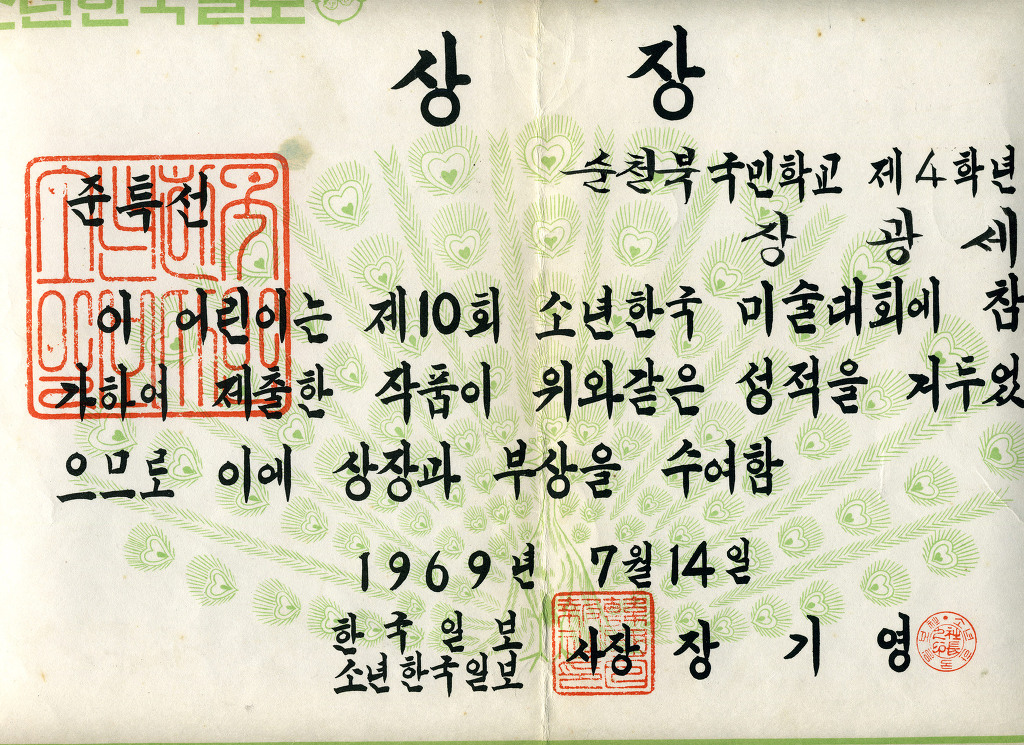 소년한국일보
상 장
순천북국민학교 제4학년
준특선
장 광 세
이 어린이는 제10회 소년한국 미술대회에 참
가하여 제출한 작품이 위와같은 성적을 거두었
으므로 이에 상장과 부상을 수여함
1969년 7월 14일
한국일보
소년한국일보
사장 장 기 영